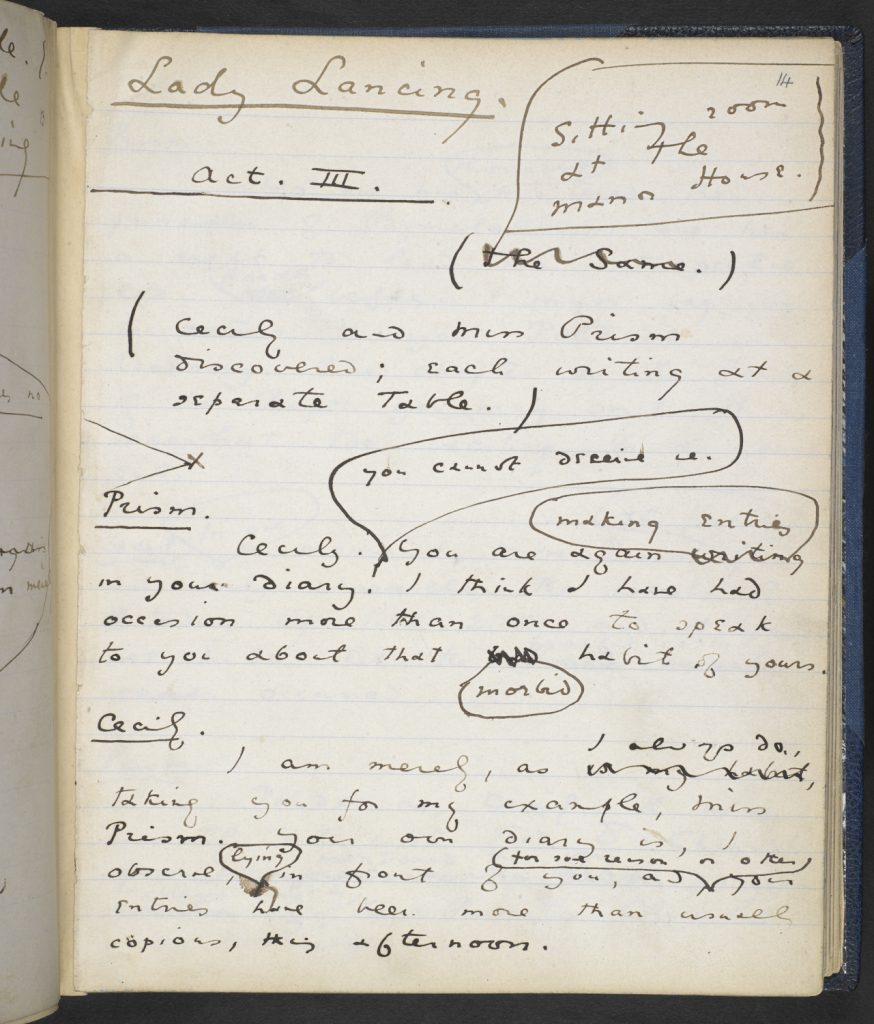 Lady Lancing.
14
Sitting room
at the
Manor House.
Act. III.
(the Same.)
(Cecily and Miss Prism
discovered; each writing at a
separate Table.)
x
you cannot deceive me.
Prism.
making entries
Cecily. You are again writing
in your diary! I think I have had
occasion more than once to speak
to you about that habit of yours.
morbid
Cecily.
I always do,
I am merely, as is my habit,
taking you for my example, Miss
Prism. Your own diary is, I
lying
for some reason, or other,
observe, in front of you, and your
entries have been more than usually
copious, this afternoon.